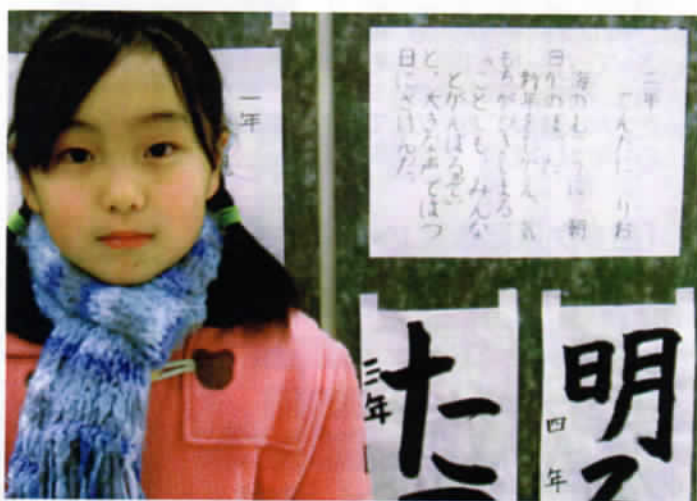 二年
りお
海のむこうに 朝
日がのぼった
新年 気
もちがひきしまる。
「ことしも、みんな
とがんばるぞ」
と、大きな声ではつ
日にさけんだ。
一年
明
四年
た
三年